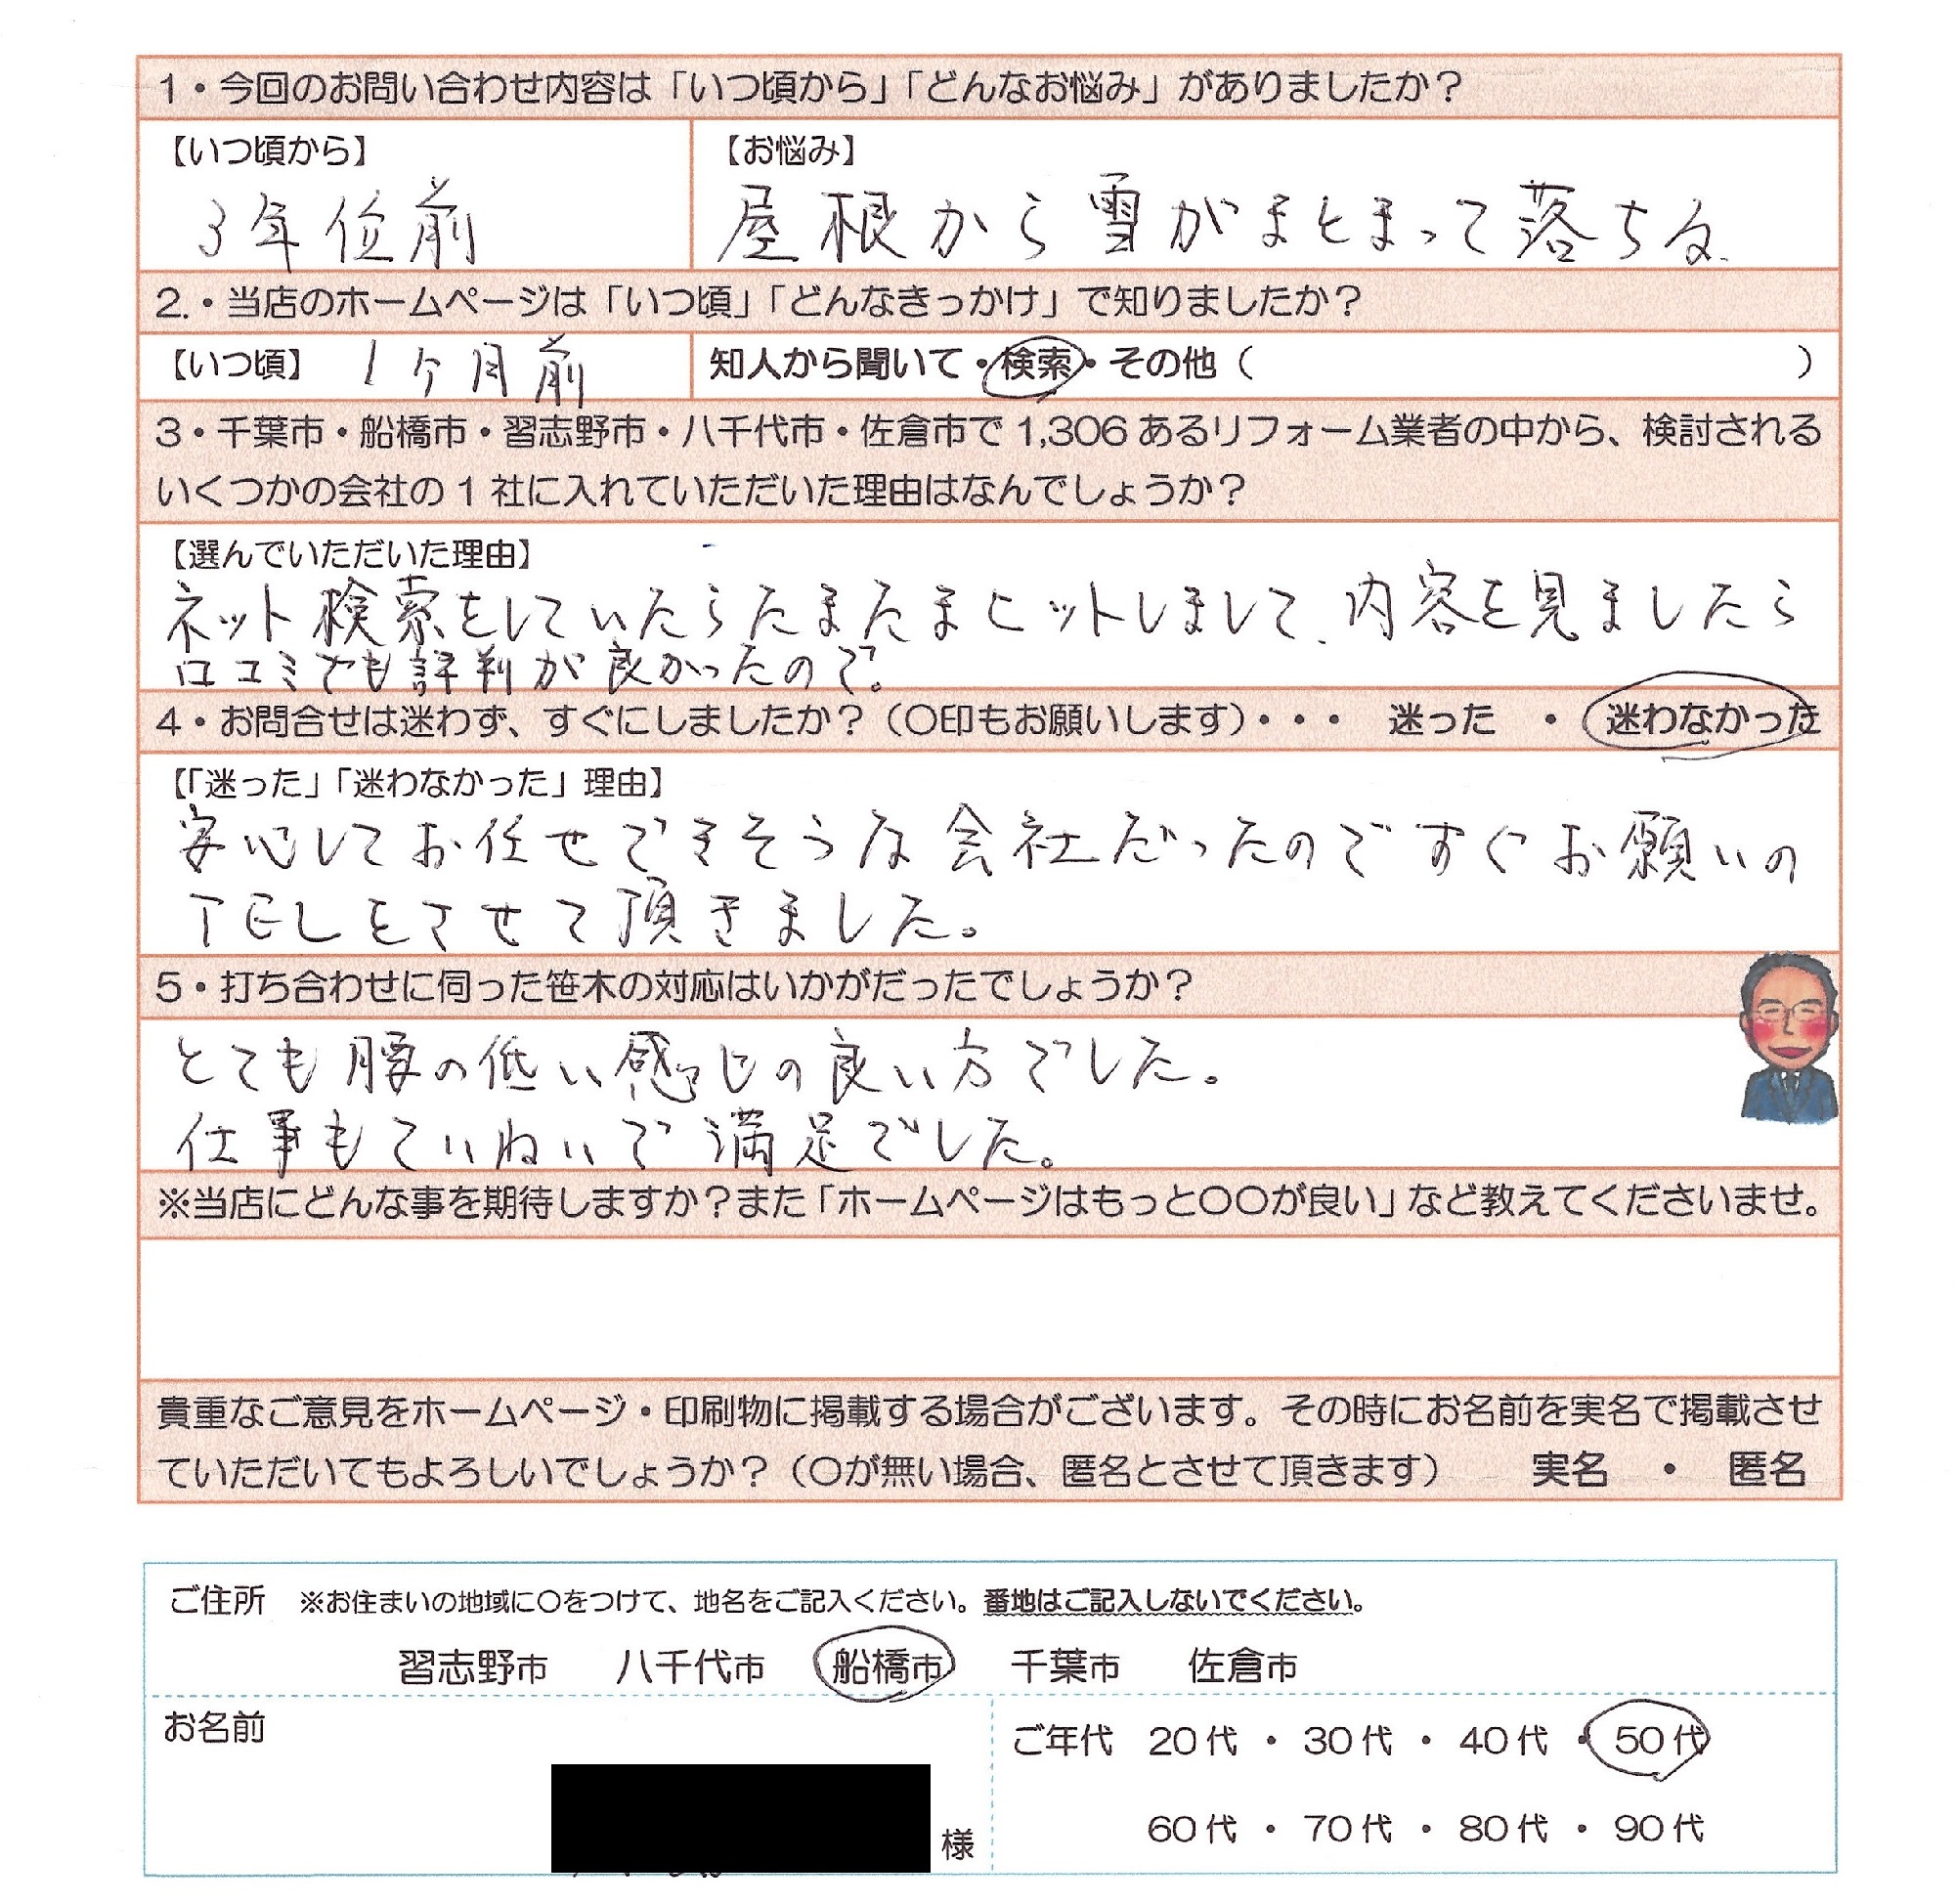 1・今回のお問い合わせ内容は「いつ頃から」「どんなお悩み」がありましたか？
【いつ頃から】
3年位前
【お悩み】
屋根から雪がまとまって落ちる.
2.・当店のホームページは「いつ頃」「どんなきっかけ」で知りましたか？
【いつ頃】 1ケ月前
知人から聞いて・検索・その他（ ）
3・千葉市・船橋市・習志野市・八千代市・佐倉市で1,306あるリフォーム業者の中から、検討される
いくつかの会社の1社に入れていただいた理由はなんでしょうか？
【選んでいただいた理由】
ネット検索をしていたらたまたまヒットしまして、内容を見ましたら
口コミでも評判が良かったので。
4・お問合せは迷わず、すぐにしましたか？（〇印もお願いします）・・・ 迷った ・ 迷わなかった
【「迷った」「迷わなかった」理由】
安心してお任せできそうな会社だったのですぐお願いの
TELをさせて頂きました。
5・打ち合わせに伺った笹木の対応はいかがだったでしょうか？
とても腰の低い感じの良い方でした。
仕事もていねいで満足でした。
※当店にどんな事を期待しますか？また「ホームページはもっと〇〇が良い」など教えてくださいませ。
貴重なご意見をホームページ・印刷物に掲載する場合がございます。その時にお名前を実名で掲載させ
ていただいてもよろしいでしょうか？（〇が無い場合、匿名とさせて頂きます） 実名 ・ 匿名
ご住所 ※お住まいの地域に〇をつけて、地名をご記入ください。番地はご記入しないでください。
習志野市 八千代市 船橋市 千葉市 佐倉市
お名前
様
ご年代 20代 ・ 30代 ・ 40代 ・ 50代
60代 ・ 70代 ・ 80代 ・ 90代